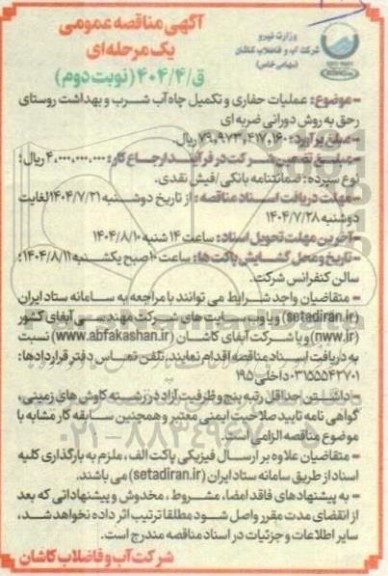 آگهی مناقصه عمومی
یک مرحله‌ای
ق/۴۰۴/۴ (نوبت دوم)
وزارت نیرو
شرکت آب و فاضلاب کاشان
(سهامی خاص)
- موضوع: عملیات حفاری و تکمیل چاه آب شرب و بهداشت روستای
رحق به روش دورانی ضربه ای
- مبلغ برآورد: ۷۹,۹۷۳,۴۱۷,۱۶۰ ریال.
- مبلغ تضمین شرکت در فرآیند ارجاع کار: ۴,۰۰۰,۰۰۰,۰۰۰ ریال؛
نوع سپرده: ضمانتنامه بانکی/فیش نقدی.
- مهلت دریافت اسناد مناقصه: از تاریخ دوشنبه ۱۴۰۴/۷/۲۱ لغایت
دوشنبه ۱۴۰۴/۷/۲۸
- آخرین مهلت تحویل اسناد: ساعت ۱۴ شنبه ۱۴۰۴/۸/۱۰
- تاریخ و محل گشایش پاکت ها: ساعت ۱۰ صبح یکشنبه ۱۴۰۴/۸/۱۱؛
سالن کنفرانس شرکت.
- متقاضیان واجد شرایط می توانند با مراجعه به سامانه ستاد ایران
(setadiran.ir) و یا وب سایت های شرکت مهندسی آبفای کشور
(nww.ir) و یا شرکت آبفای کاشان (www.abfakashan.ir) نسبت
به دریافت اسناد مناقصه اقدام نمایند. تلفن تماس دفتر قراردادها:
۰۳۱۵۵۵۴۲۷۰۱ داخلی ۱۹۵
- داشتن حداقل رتبه پنج و ظرفیت آزاد در رشته کاوش های زمینی،
گواهی نامه تایید صلاحیت ایمنی معتبر و همچنین سابقه کار مشابه با
موضوع مناقصه الزامی است.
- متقاضیان علاوه بر ارسال فیزیکی پاکت الف، ملزم به بارگذاری کلیه
اسناد از طریق سامانه ستاد ایران (setadiran.ir) می باشند.
- به پیشنهادهای فاقد امضا، مشروط، مخدوش و پیشنهاداتی که بعد
از انقضای مدت مقرر واصل شود مطلقا ترتیب اثر داده نخواهد شد.
سایر اطلاعات و جزئیات در اسناد مناقصه مندرج است.
شرکت آب و فاضلاب کاشان
۰۲۱-۸۸۳۴۹۶۷۰